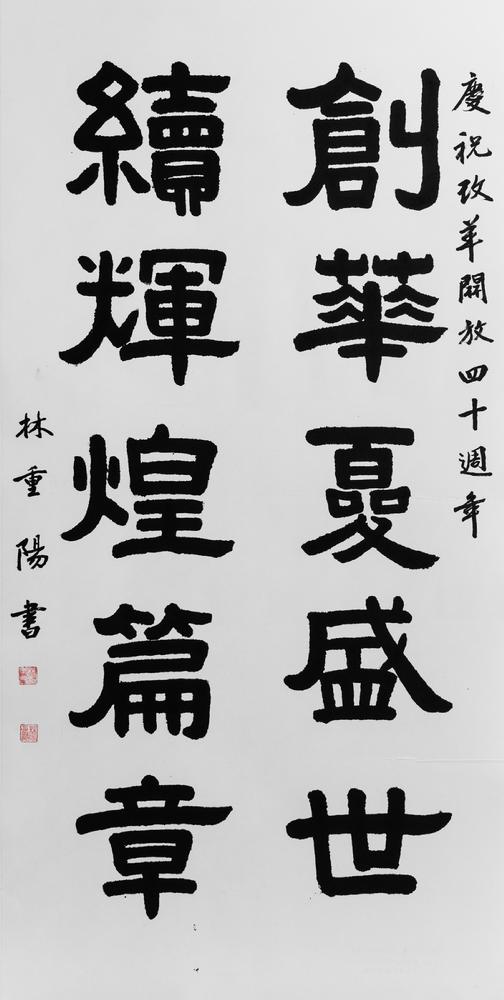 慶祝改革開放四十週年
創華夏盛世
續輝煌篇章
林重陽書